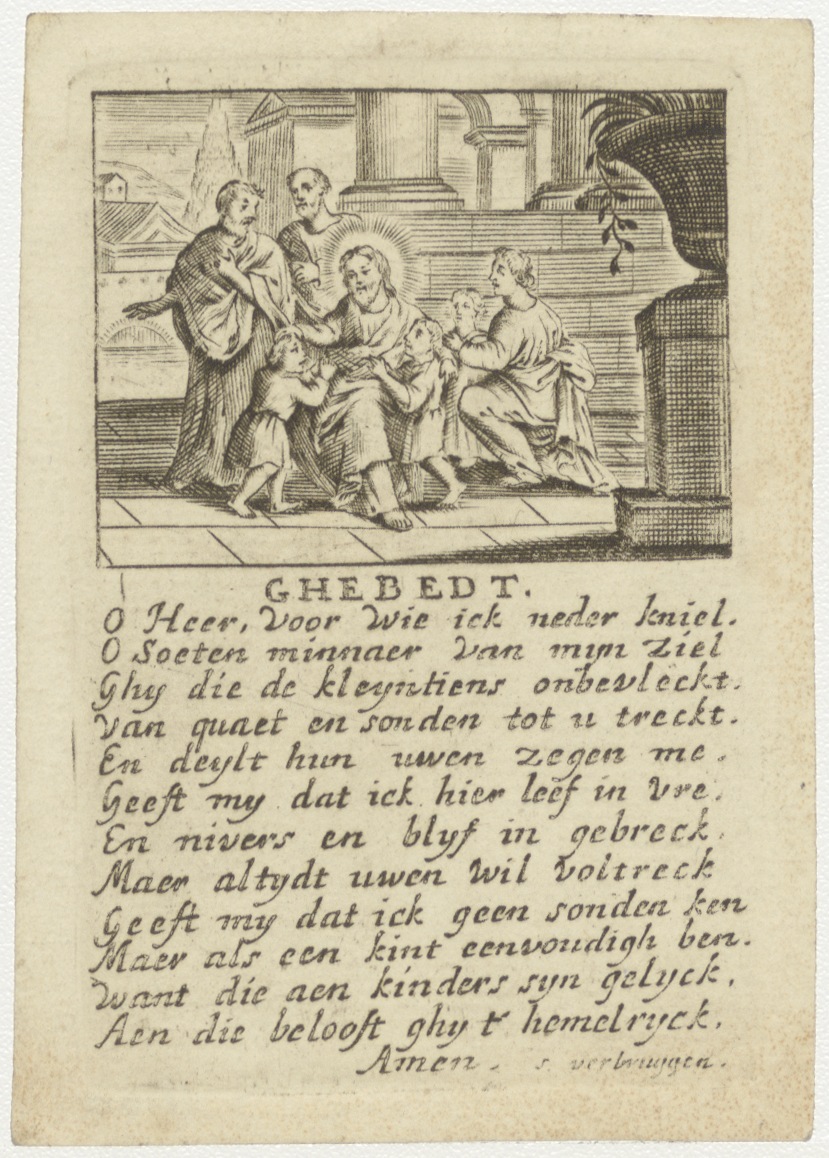 GHEBEDT.
O Heer, Voor Wie ick neder kniel.
O Soeten minnaer Van mijn Ziel
Ghy die de kleyntiens onbevleckt.
Van quaet en sonden tot u treckt.
En deylt hun uwen zegen me.
Geeft my dat ick hier leef in Vre.
En nivers en blyf in gebreck.
Maer altydt uwen Wil Voltreck
Geeft my dat ick geen sonden ken
Maer als een kint eenvoudigh ben.
Want die aen kinders syn gelyck.
Aen die belooft ghy t' hemelryck.
Amen. s verbruggen.